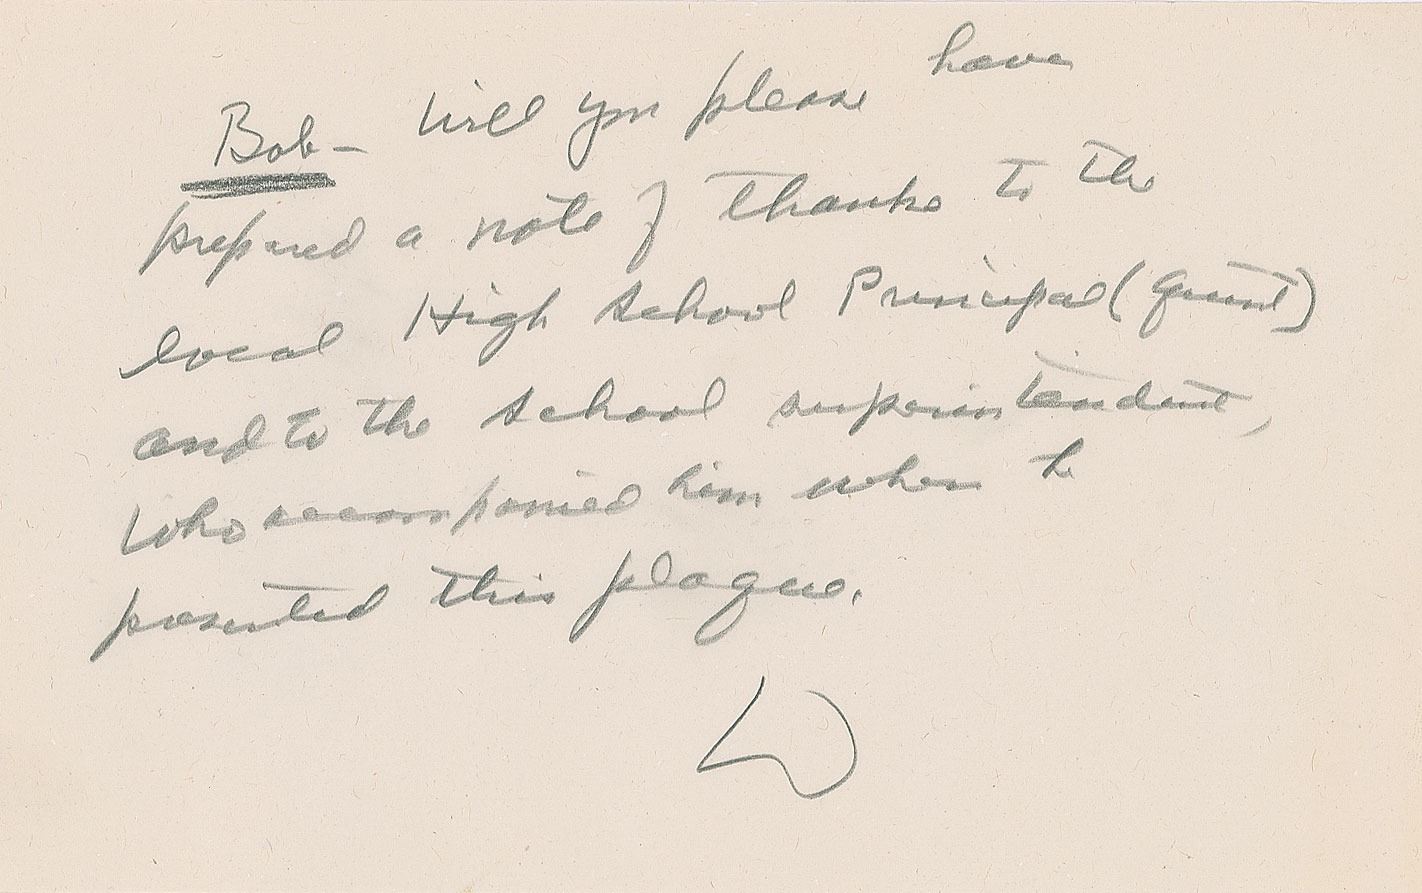 Bob- Will you please have
prepared a note of thanks to the
local High School Principal
and to the school superintendent,
who accompanied him when he
presented this plaque.
D